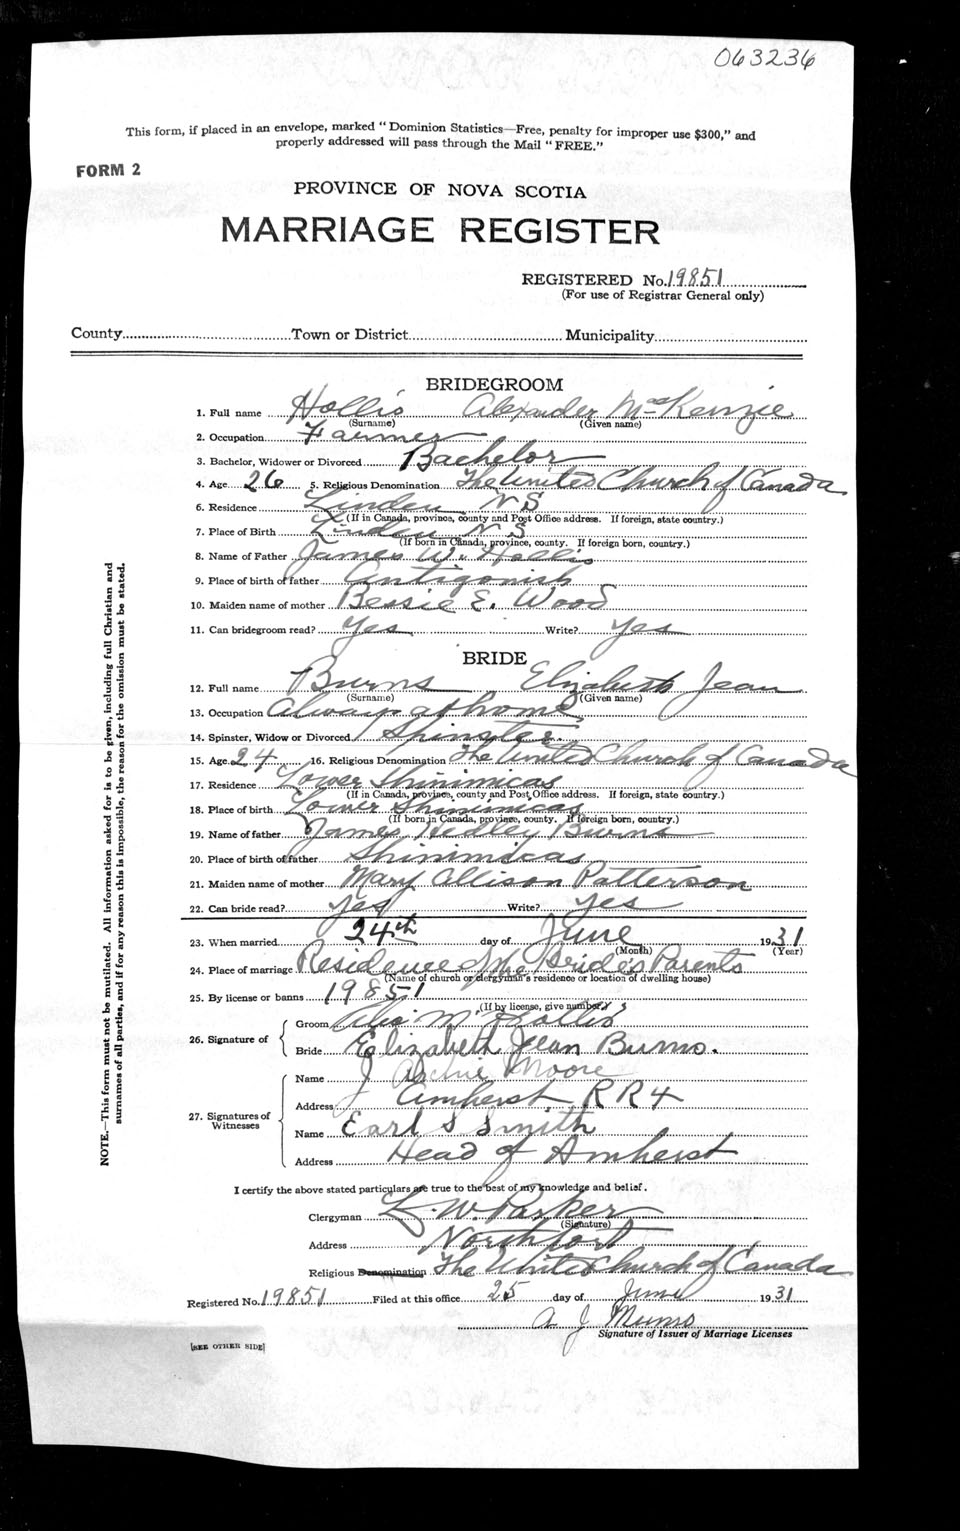 063236
This form, if placed in an envelope, marked "Dominion Statistics—Free, penalty for improper use $300," and
properly addressed will pass through the Mail "FREE."
FORM 2
PROVINCE OF NOVA SCOTIA
MARRIAGE REGISTER
REGISTERED No. 19851
(For use of Registrar General only)
County Town or District Municipality
BRIDEGROOM
1. Full name Hollis Alexander McKenzie
(Surname) (Given name)
2. Occupation Farmer
3. Bachelor, Widower or Divorced Bachelor
4. Age 26 5. Religious Denomination The United Church of Canada
6. Residence Linden N S
(If in Canada, province, county and Post Office address. If foreign, state country.)
7. Place of Birth Linden N S
(If born in Canada, province, county. If foreign born, country.)
8. Name of Father James W. Hollis
9. Place of birth of father Antigonish
10. Maiden name of mother Bessie E. Wood
11. Can bridegroom read? Yes Write? Yes
BRIDE
12. Full name Burns Elizabeth Jean
(Surname) (Given name)
13. Occupation Always at home
14. Spinster, Widow or Divorced Spinster
15. Age 24 16. Religious Denomination The United Church of Canada
17. Residence Lower Shinimicas
(If in Canada, province, county and Post Office address. If foreign, state country.)
18. Place of birth Lower Shinimicas
(If born in Canada, province, county. If foreign born, country.)
19. Name of father James Hedley Burns
20. Place of birth of father Shinimicas
21. Maiden name of mother Mary Allison Patterson
22. Can bride read? yes Write? yes
23. When married 24th day of June 1931
(Month) (Year)
24. Place of marriage Residence of the Bride's Parents
(Name of church or clergyman's residence or location of dwelling house)
25. By license or banns 19851
(If by license, give number)
26. Signature of
Groom Alex McK Hollis
Bride Elizabeth Jean Burns.
27. Signatures of
Witnesses
Name J Archie Moore
Address Amherst R R 4
Name Earl S Smith
Address Head of Amherst
I certify the above stated particulars are true to the best of my knowledge and belief.
Clergyman L. W. Parker
(Signature)
Address Northport
Religious Denomination The United Church of Canada
Registered No. 19851 Filed at this office 25 day of June 1931
A J
Signature of Issuer of Marriage Licenses
[SEE OTHER SIDE]
NOTE.—This form must not be mutilated. All information asked for is to be given, including full Christian and
surnames of all parties, and if for any reason this is impossible, the reason for the omission must be stated.